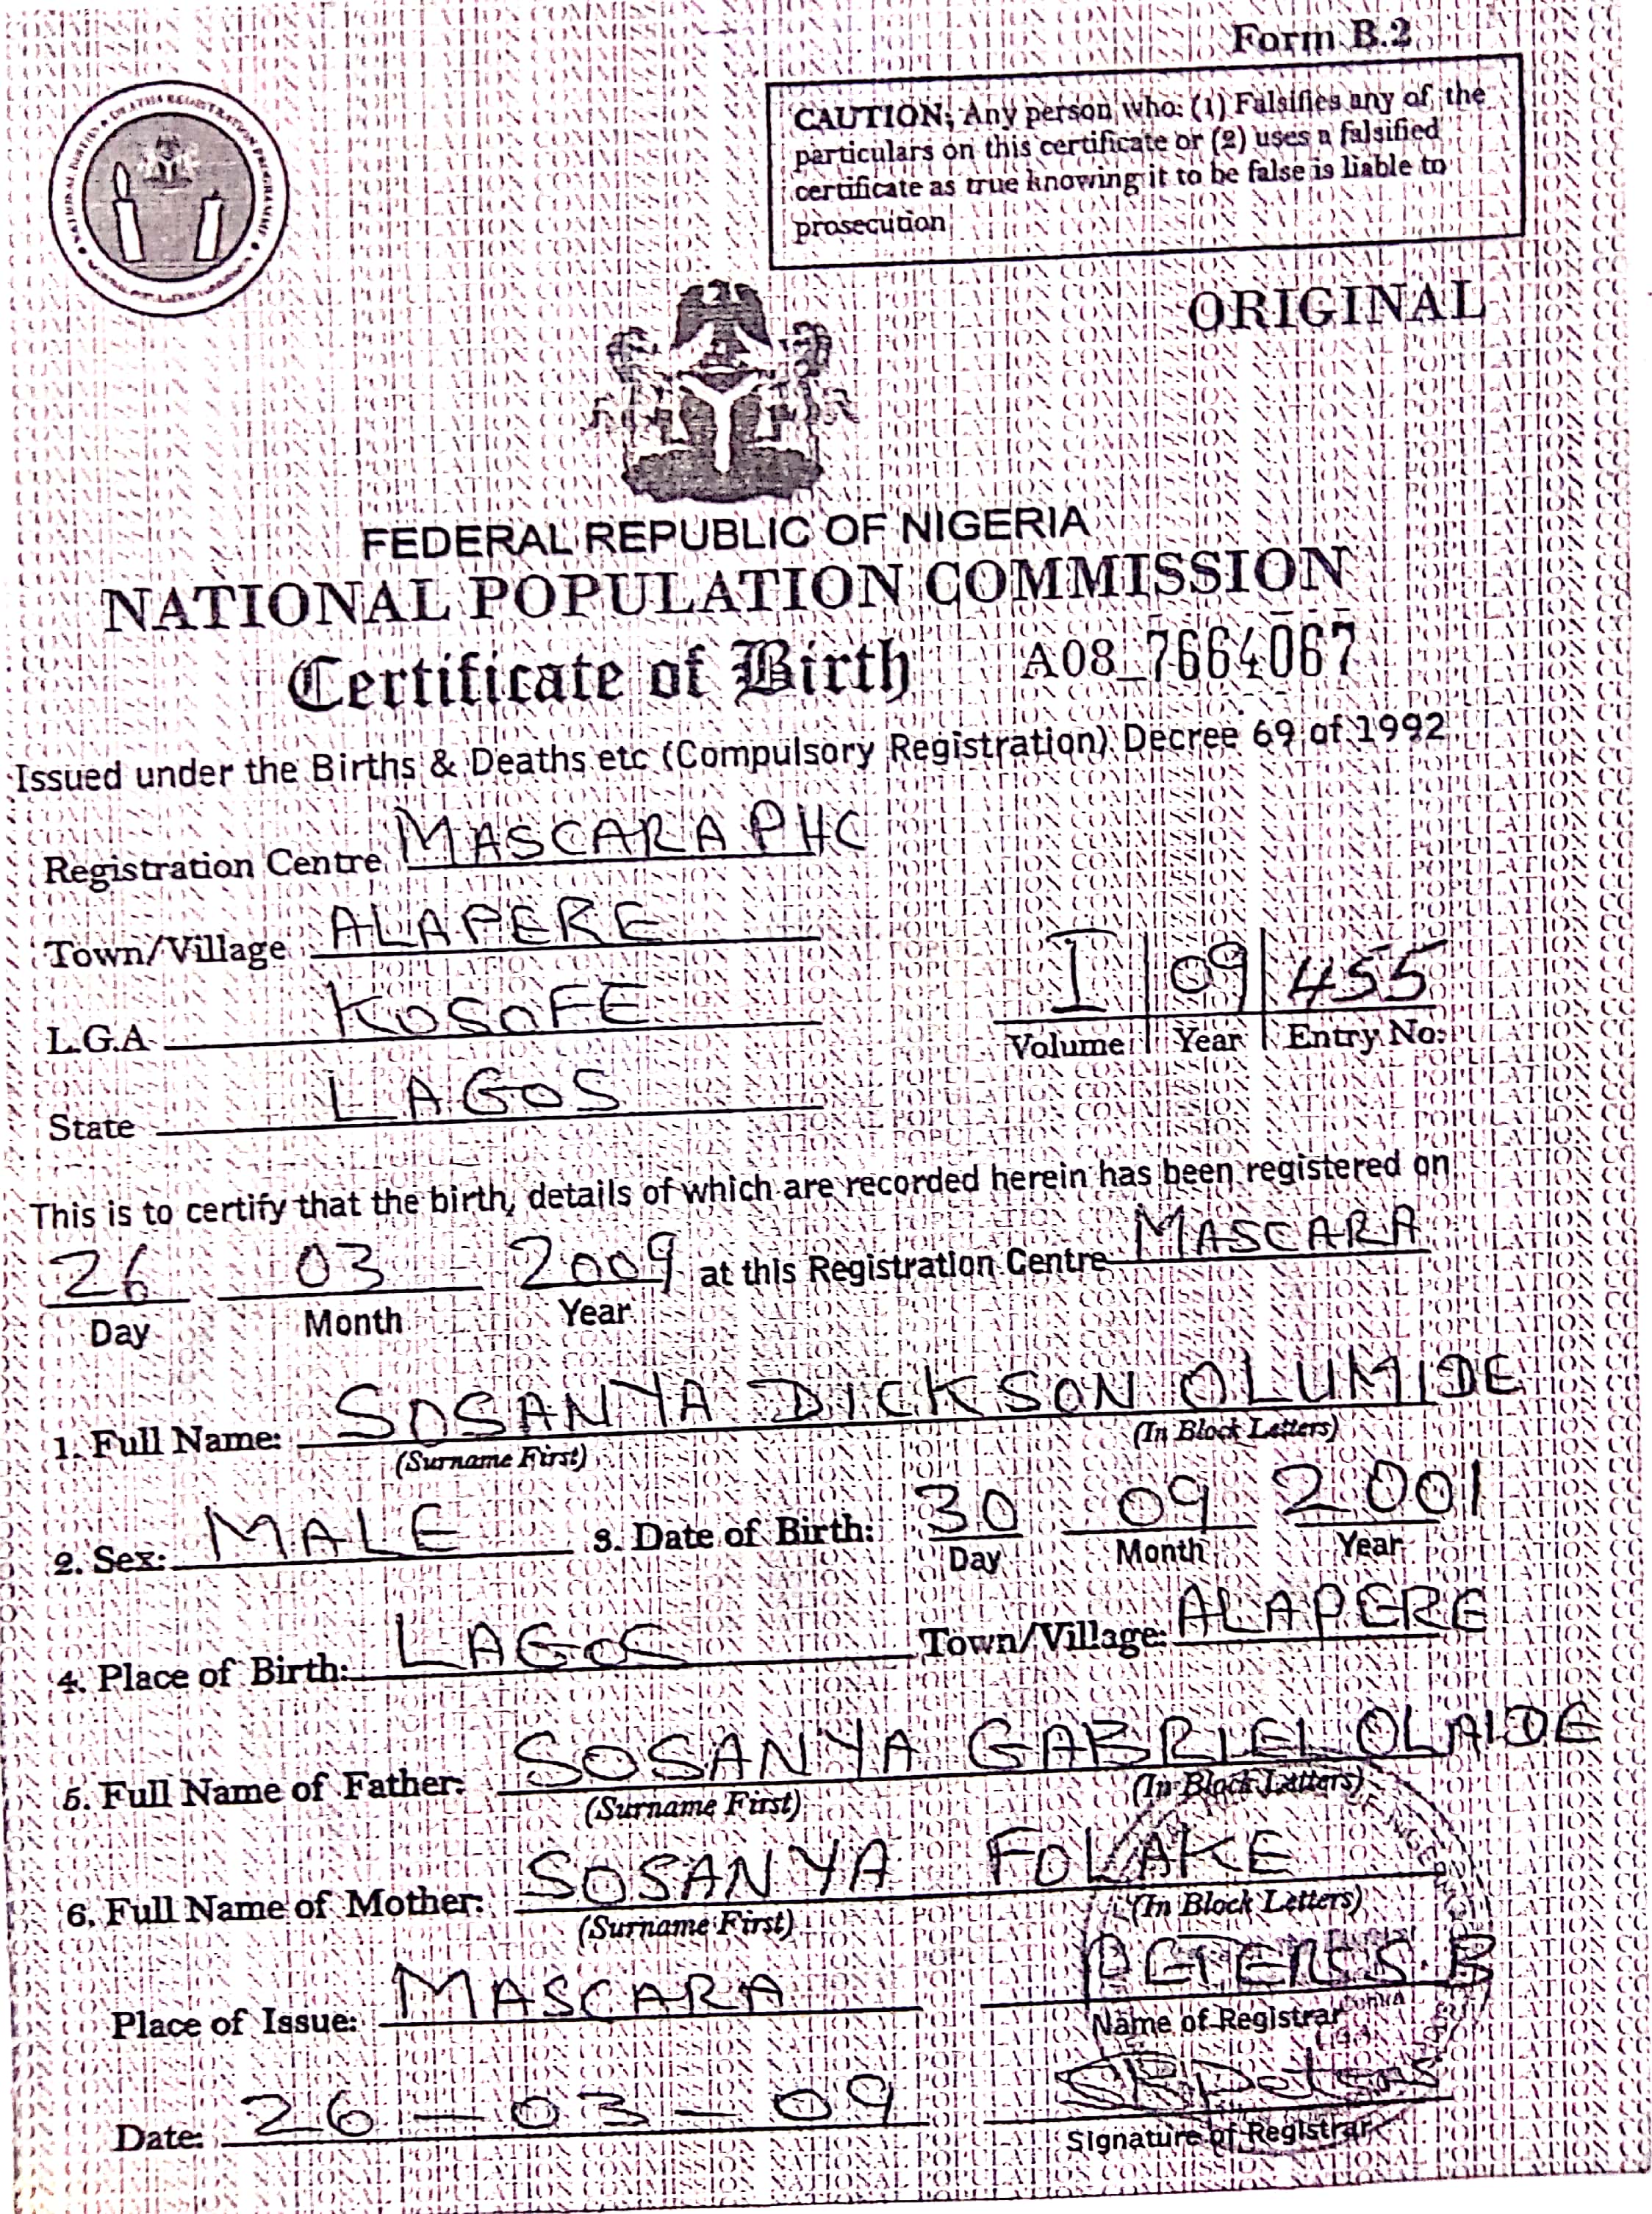 Form B.2
CAUTION; Any person who: (1) Falsifies any of the
particulars on this certificate or (2) uses a falsified
certificate as true knowing it to be false is liable to
prosecution
ORIGINAL
FEDERAL REPUBLIC OF NIGERIA
NATIONAL POPULATION COMMISSION
Certificate of Birth A08_7664067
Issued under the Births & Deaths etc (Compulsory Registration) Decree 69 of 1992
Registration Centre MASCARA PHC
Town/Village ALAPERE
I 09 455
L.G.A KOSOFE
Volume Year Entry No:
State LAGOS
This is to certify that the birth, details of which are recorded herein has been registered on
26 03 2009 at this Registration Centre MASCARA
Day Month Year
1. Full Name: SOSANYA DICKSON OLUMIDE
(Surname First) (In Block Letters)
2. Sex: MALE 3. Date of Birth: 30 09 2001
Day Month Year
4. Place of Birth: LAGOS Town/Village: ALAPERE
5. Full Name of Father: SOSANYA GABRIEL OLAIDE
(Surname First) (In Block Letters)
6. Full Name of Mother: SOSANYA FOLAKE
(Surname First) (In Block Letters)
Place of Issue: MASCARA PETERS. B
Name of Registrar
Date: 26-03-09
Signature of Registrar